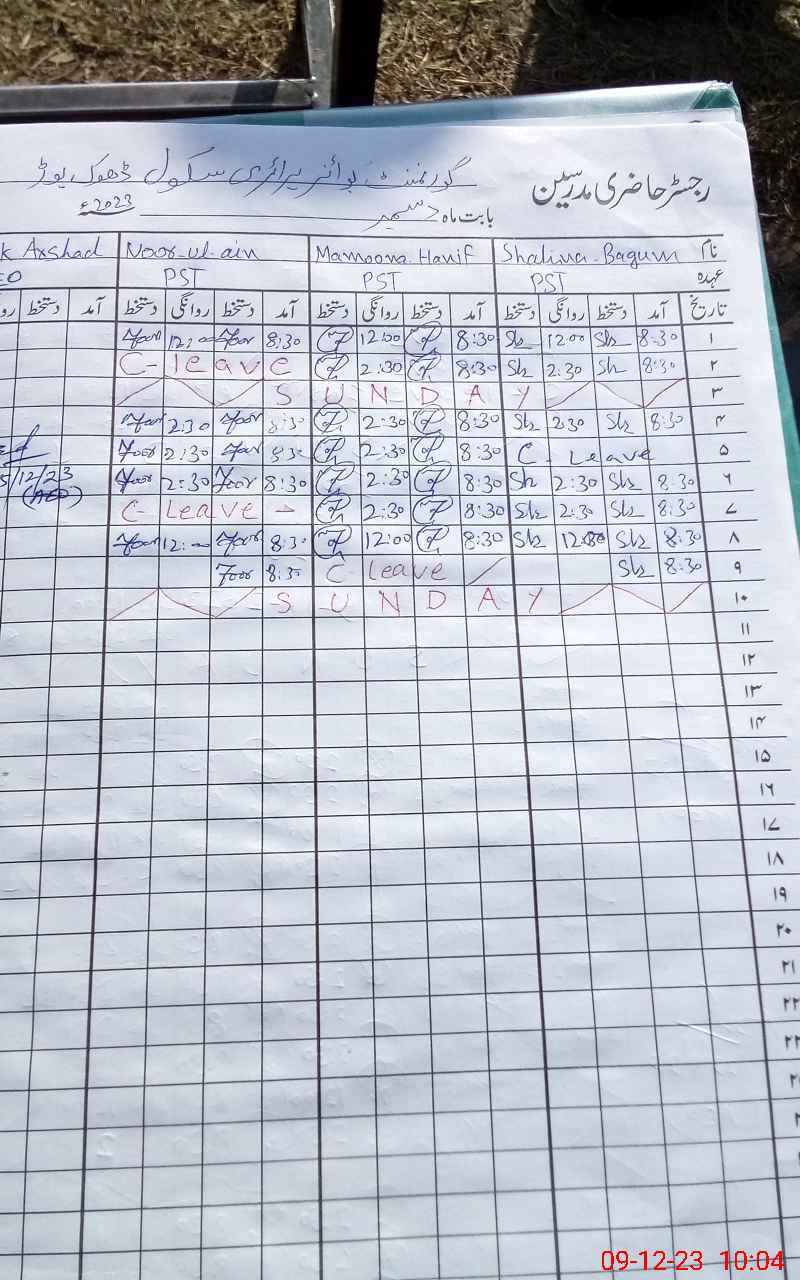 رجسٹر حاضری مدرسین
گورنمنٹ بوائز پرائمری سکول ڈھوک بوڑ
بابت ماہ دسمبر 2023ء
نام Shalima Bagum Mamoona Hanif Noor-ul-ain k Arshad
عہدہ PST PST PST EO
تاریخ آمد دستخط روانگی دستخط آمد دستخط روانگی دستخط آمد دستخط روانگی دستخط آمد دستخط رو
۱ 8:30 Sh 12:00 Sh 8:30 12:00 8:30 Noor 12:00 Noor
۲ 8:30 Sh 2:30 Sh 8:30 2:30 C- leave
۳ S U N D A Y
۴ 8:30 Sh 2:30 Sh 8:30 2:30 8:30 Noor 2:30 Noor
۵ C. Leave 8:30 2:30 8:30 Noor 2:30 Noor
۶ 8:30 Sh 2:30 Sh 8:30 2:30 8:30 Noor 2:30 Noor 5/12/23
(AEO)
۷ 8:30 Sh 2:30 Sh 8:30 2:30 C- Leave -
۸ 8:30 Sh 12:00 Sh 8:30 12:00 8:30 Noor 12:00 Noor
۹ 8:30 Sh C leave 8:30 Noor
۱۰ S U N D A Y
۱۱
۱۲
۱۳
۱۴
۱۵
۱۶
۱۷
۱۸
۱۹
۲۰
۲۱
۲۲
۲۳
09-12-23 10:04